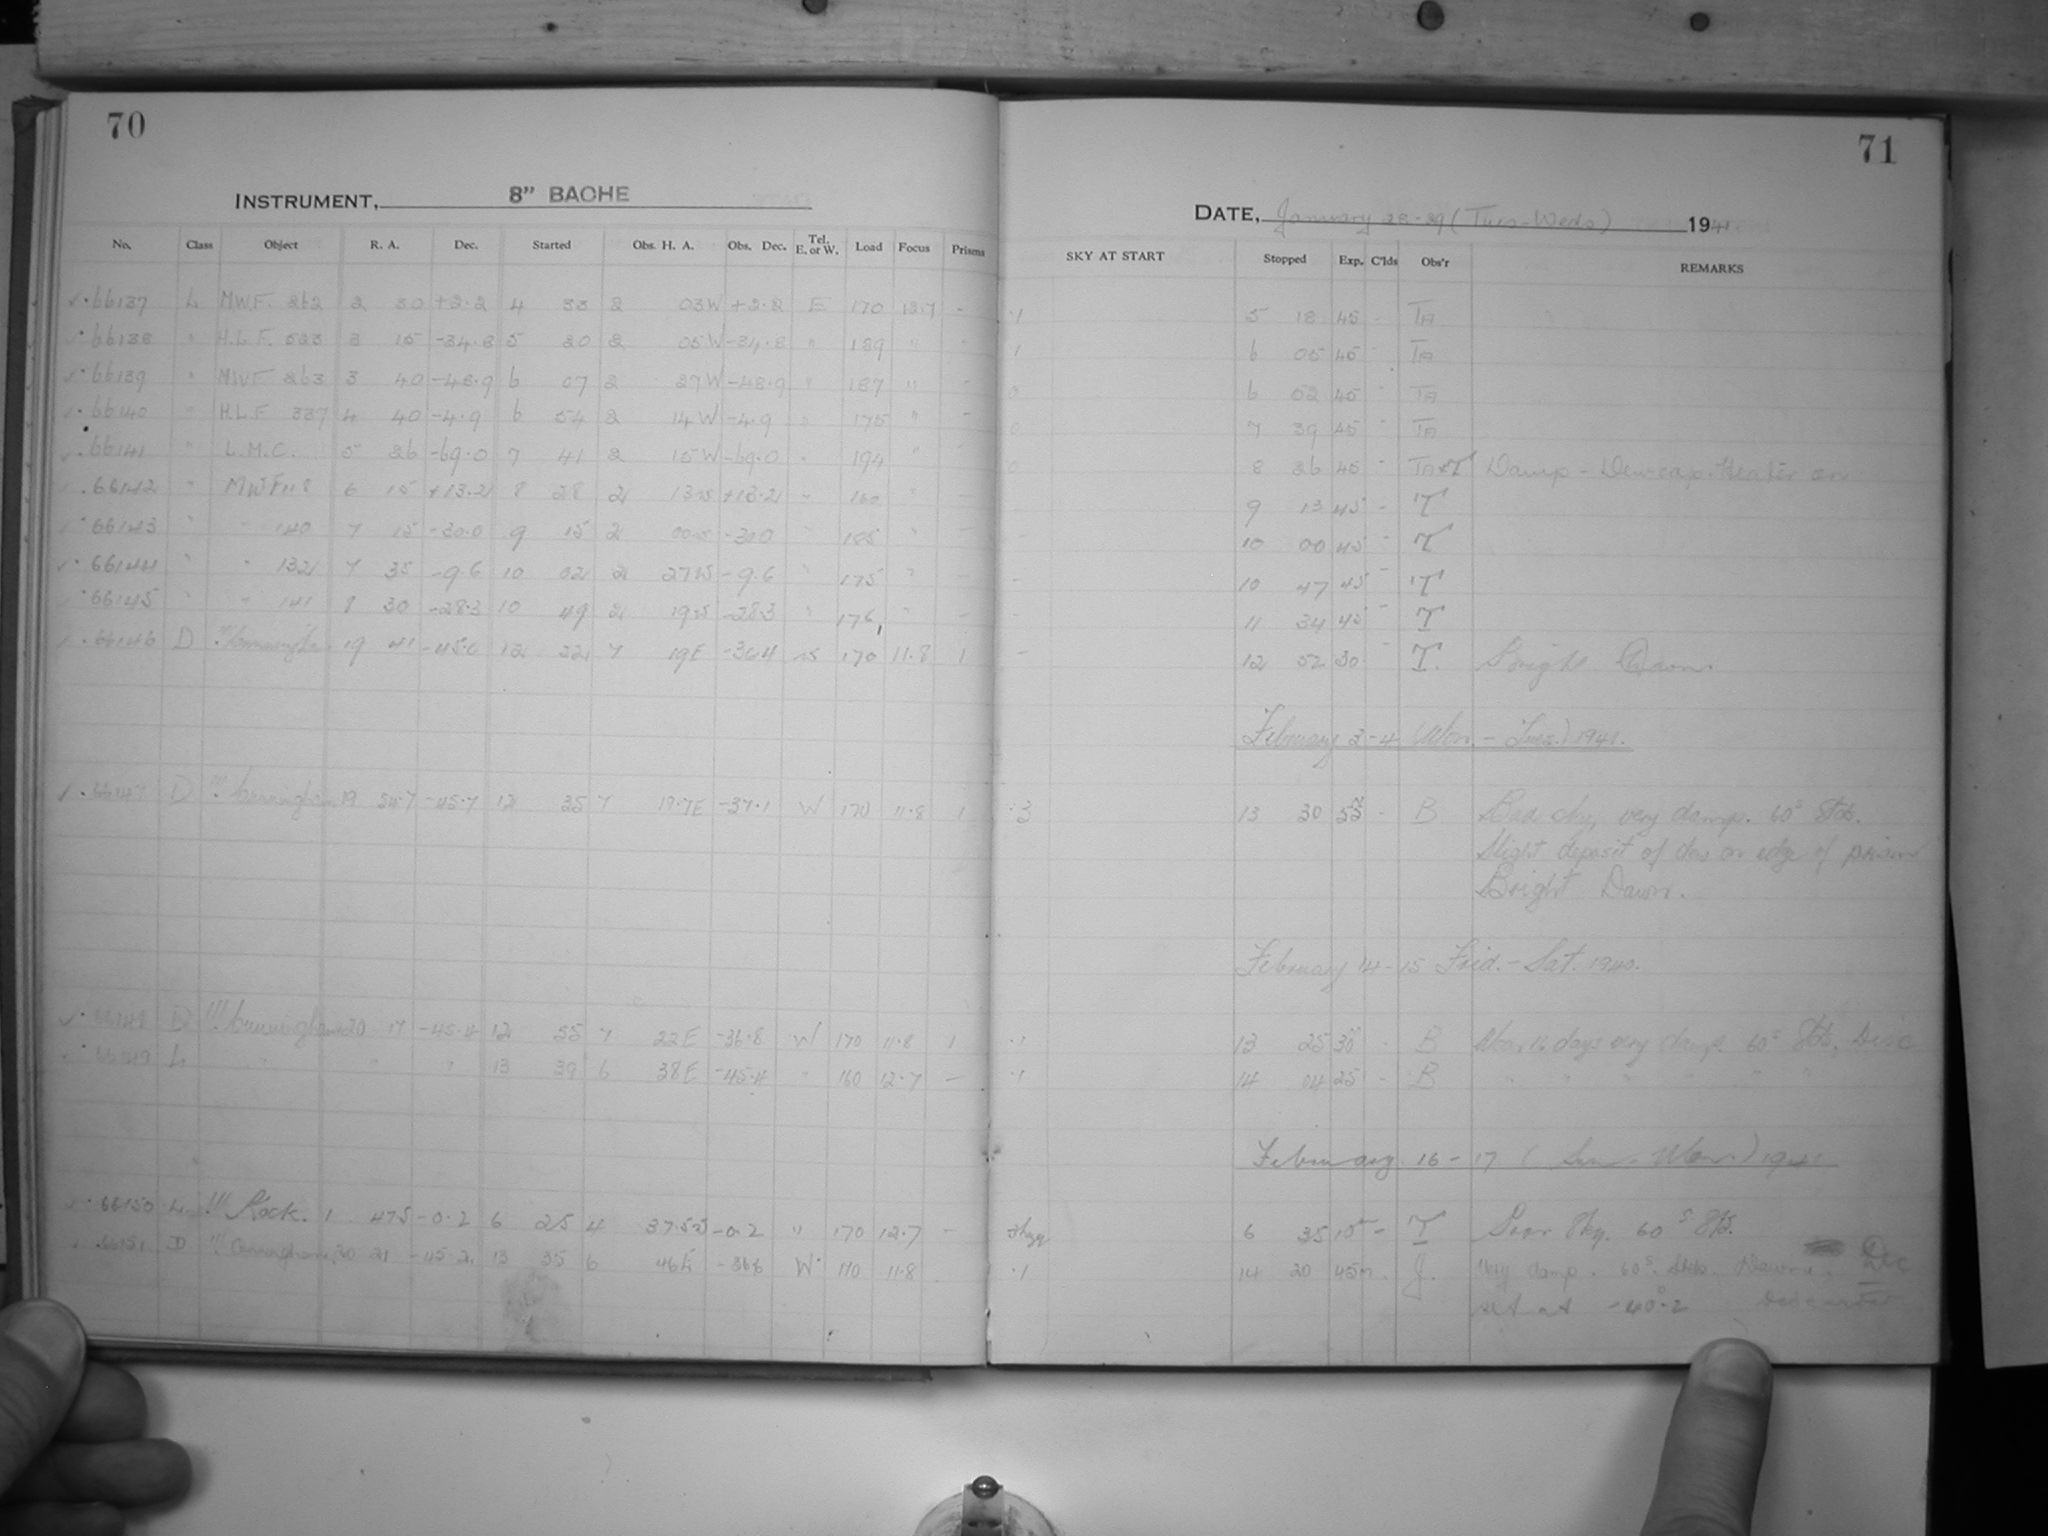 70
71
INSTRUMENT, 8" BACHE
DATE, January 28-29 (Tues-Weds) 1941
No. Class Object R. A. Dec. Started Obs. H. A. Obs. Dec. Tel. E. or W. Load Focus Prisms SKY AT START Stopped Exp. C'lds Obs'r REMARKS
66137 L MWF. 262 2 30 +2.2 4 33 2 03W +2.2 E 170 12.7 - .1 5 18 45 - TA
66138 " H.L.F. 533 3 15 -34.8 5 20 2 05W -34.8 " 189 " - 1 6 05 45 - TA
66139 " MWF 263 3 40 -48.9 6 07 2 27W -48.9 " 187 " - 0 6 52 45 - TA
66140 " H.L.F 337 4 40 -4.9 6 54 2 14W -4.9 " 175 " - 0 7 39 45 - TA
66141 " L.M.C. 5 26 -69.0 7 41 2 15W -69.0 " 194 " - 0 8 26 45 - TA+T Damp - Dew-cap-Heater on
66142 " MWF118 6 15 +13.2 8 28 2 13W +13.2 " 160 " - 9 13 45 - T
66143 " " 140 7 15 -30.0 9 15 2 00W -30.0 " 185 " - - 10 00 45 - T
66144 " " 132 7 35 -9.6 10 02 2 27W -9.6 " 175 " - - 10 47 45 - T
66145 " " 141 8 30 -28.3 10 49 2 19W -28.3 " 176 " - - 11 34 45 - T
66146 D !!! Cunningham 19 41 -45.6 12 22 7 19E -36.4 W 170 11.8 1 - 12 52 30 - T. Bright Dawn.
February 3-4 (Mon. - Tues.) 1941.
66147 D !!! Cunningham 19 54.7 -45.7 12 35 7 19.7E -37.1 W 170 11.8 1 .3 13 30 55 - B Bad sky, very damp. 60s Stps.
Slight deposit of dew on edge of prism
Bright Dawn.
February 14-15 Frid. - Sat. 1940.
66148 D !!! Cunningham 20 17 -45.4 12 55 7 22E -36.8 W 170 11.8 1 .1 13 25 30 - B Moon 16 days very damp 60s Stps,
66149 L " " " 13 39 6 38E -45.4 " 160 12.7 - .1 14 04 25 - B " " " " " "
February 16-17 (Sun - Mon.) 1941
66150 L !!! Rock. 1 47.5 -0.2 6 25 4 37.5W -0.2 " 170 12.7 - 6 35 10 - T Poor Sky. 60s Sts.
66151 D !!! Cunningham 20 21 -45.2 13 35 6 46E -36.6 W 170 11.8 .1 14 20 45m. J. Very damp. 60s. Stps. Dawn. Dec
set at -40°.2